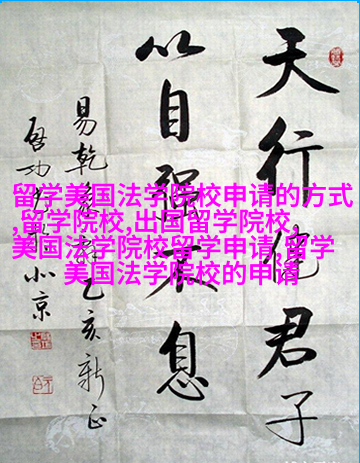 天行健君子
以自强不息
易乾乙亥新正
啓功北京
留学美国法学院校申请的方式
,留学院校,出国留学院校,
美国法学院校留学申请,留学
美国法学院校的申请